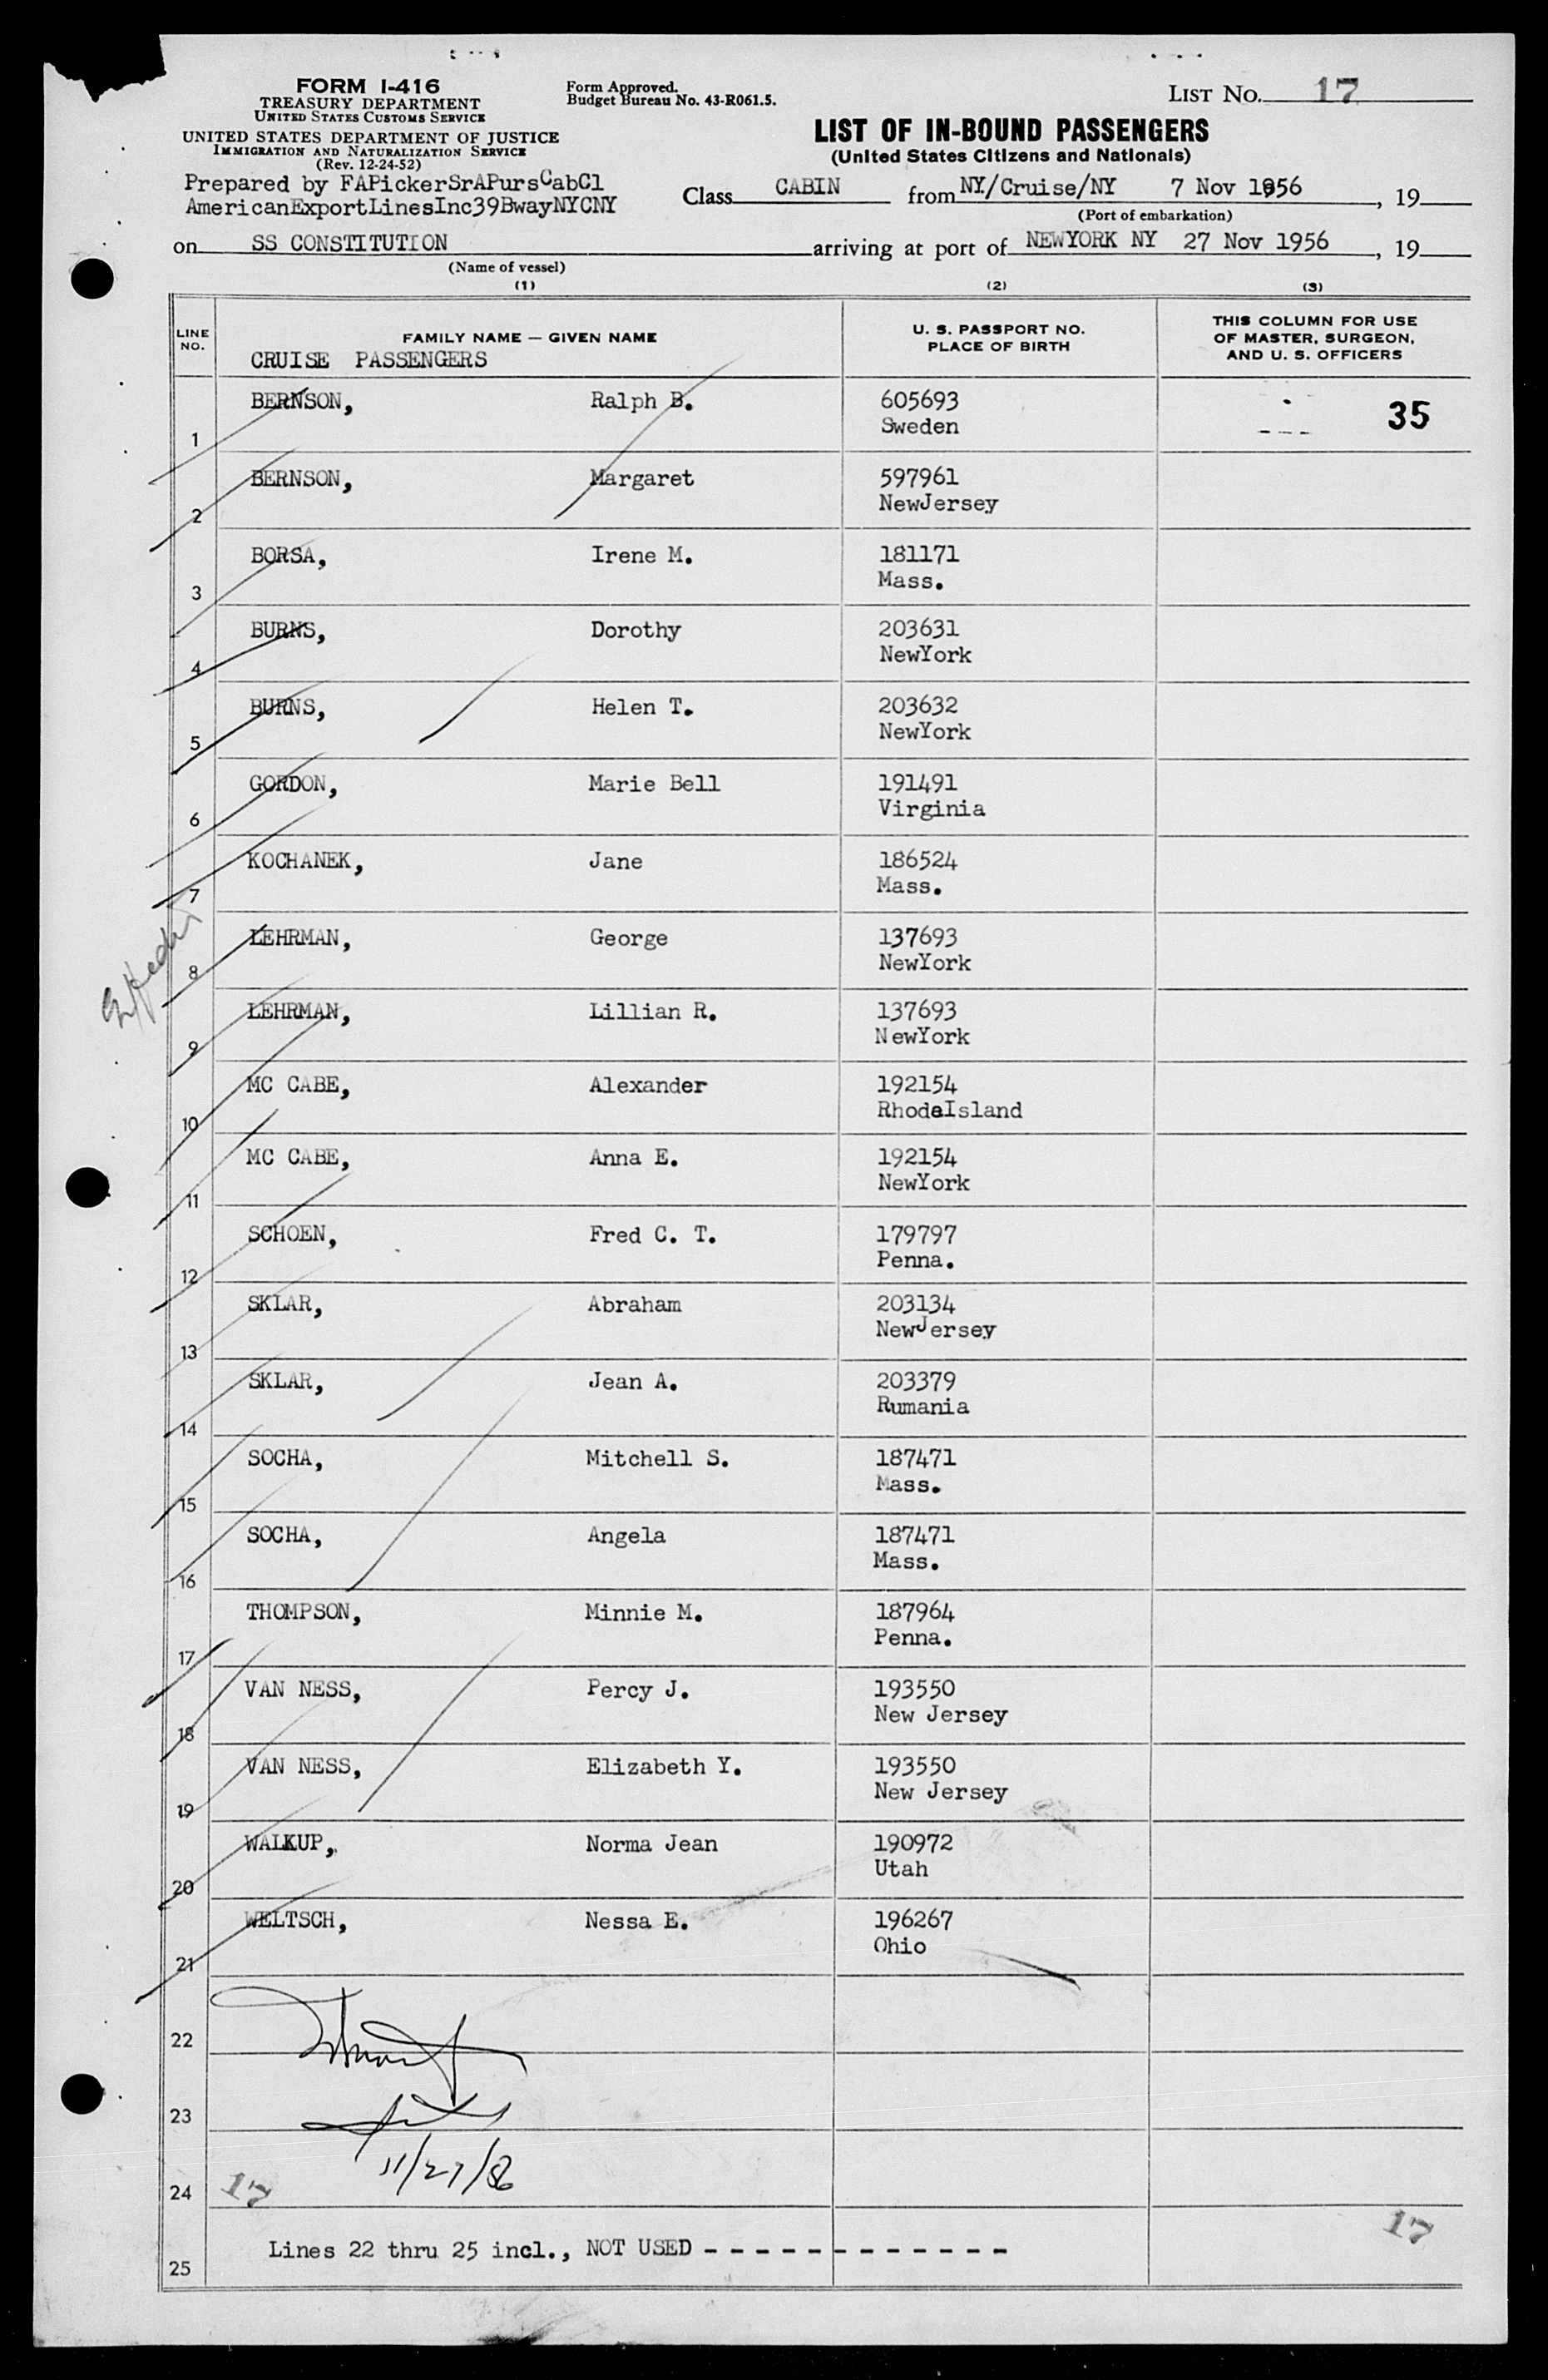 FORM I-416
TREASURY DEPARTMENT
UNITED STATES CUSTOMS SERVICE
UNITED STATES DEPARTMENT OF JUSTICE
IMMIGRATION AND NATURALIZATION SERVICE
(Rev. 12-24-52)
Form Approved.
Budget Bureau No. 43-R061.5.
LIST NO. 17
LIST OF IN-BOUND PASSENGERS
(United States Citizens and Nationals)
Prepared by FAPickerSrAPursCabCl
AmericanExportLinesInc39BwayNYCNY
Class CABIN from NY/Cruise/NY 7 Nov 1956, 19
(Port of embarkation)
on SS CONSTITUTION arriving at port of NEWYORK NY 27 Nov 1956, 19
(Name of vessel)
(1) (2) (3)
LINE NO.
FAMILY NAME — GIVEN NAME
U. S. PASSPORT NO.
PLACE OF BIRTH
THIS COLUMN FOR USE
OF MASTER, SURGEON,
AND U. S. OFFICERS
CRUISE PASSENGERS
1 BERNSON, Ralph B. 605693 35
Sweden
2 BERNSON, Margaret 597961
NewJersey
3 BORSA, Irene M. 181171
Mass.
4 BURNS, Dorothy 203631
NewYork
5 BURNS, Helen T. 203632
NewYork
6 GORDON, Marie Bell 191491
Virginia
7 KOCHANEK, Jane 186524
Mass.
8 LEHRMAN, George 137693
NewYork
9 LEHRMAN, Lillian R. 137693
NewYork
10 MC CABE, Alexander 192154
RhodeIsland
11 MC CABE, Anna E. 192154
NewYork
12 SCHOEN, Fred C. T. 179797
Penna.
13 SKLAR, Abraham 203134
NewJersey
14 SKLAR, Jean A. 203379
Rumania
15 SOCHA, Mitchell S. 187471
Mass.
16 SOCHA, Angela 187471
Mass.
17 THOMPSON, Minnie M. 187964
Penna.
18 VAN NESS, Percy J. 193550
New Jersey
19 VAN NESS, Elizabeth Y. 193550
New Jersey
20 WALKUP, Norma Jean 190972
Utah
21 WELTSCH, Nessa E. 196267
Ohio
22
23
11/27/56
24 17
17
25 Lines 22 thru 25 incl., NOT USED - - - - - - - - - - - -